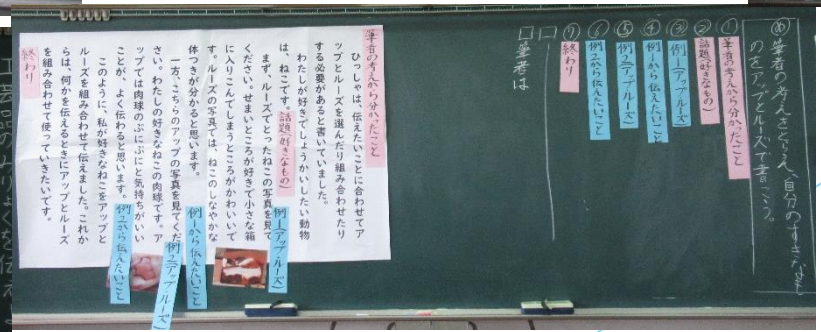 め 筆者の考えをとらえ、自分のすきなも
のをアップとルーズで書こう。
① 筆者の考えから分かったこと
② 話題(好きなもの)
③ 例1(アップ・ルーズ)
④ 例1から伝えたいこと
⑤ 例2(アップ・ルーズ)
⑥ 例2から伝えたいこと
⑦ 終わり
筆者は
筆者の考えから分かったこと
ひっしゃは、伝えたいことに合わせてア
ップとルーズを選んだり組み合わせたり
する必要があると書いていました。
わたしが好きでしょうかいしたい動物
は、ねこです。話題(好きなもの)
まず、ルーズでとったねこの写真を見て
ください。せまいところが好きで小さな箱
に入りこんでしまうところがかわいいで
す。ルーズの写真では、ねこのしなやかな
体つきが分かると思います。
例1(アップ・ルーズ)
例1から伝えたいこと
一方、こちらのアップの写真を見てくだ
さい。わたしの好きなねこの肉球です。ア
ップでは肉球のぷにぷにと気持ちがいい
ことが、よく伝わると思います。
例2(アップ・ルーズ)
例2から伝えたいこと
このように、私が好きなねこをアップと
ルーズを組み合わせて伝えました。これか
らは、何かを伝えるときにアップとルーズ
を組み合わせて使っていきたいです。
終わり
工芸品のみりょくを伝え